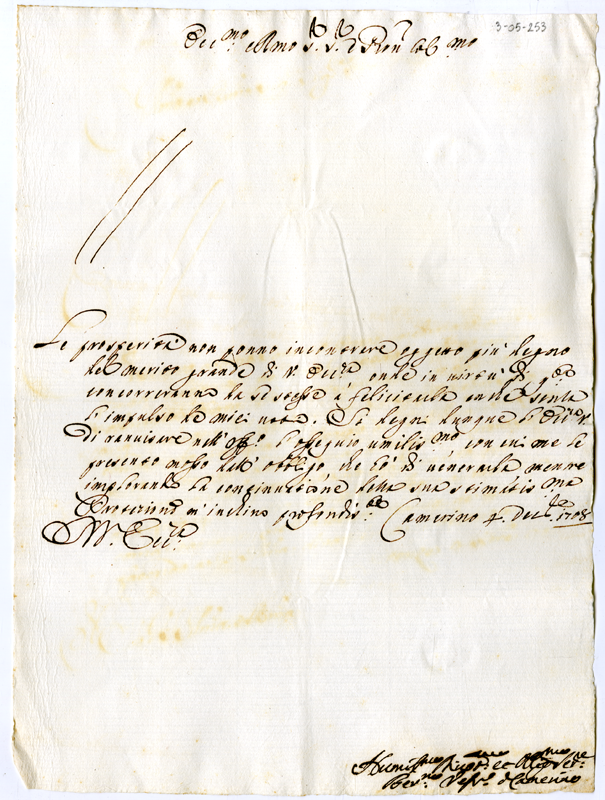 3-05-253
Ecc.mo e Rmo S.r S.r e Pron Col.mo
Le prosperità non ponno incontrare oggetto più degno
del merito grande di V. Ecc.a onde in virtù di q.to
concorreranno da se stesse à felicitarla anche senza
l'impulso de miei voti. Si degni dunque l'Ecc.a V.
di ravvisare nell' off.o l'osseguio umilis.mo con cui me le
presento mosso dall' obbligo, che hò di venerarla mentre
implorando la continuatione della sua stimatis.ma
Protezione m'inchino profondis.te Camerino 4. Dec. 1708
V. Ecc.a
Humil.mo et
Ber. Vesc. di Camerino